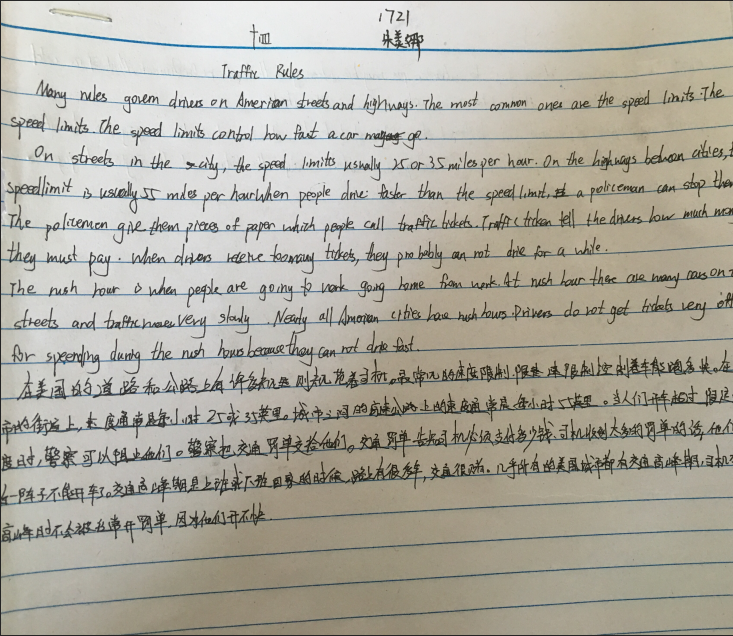 1721
十四 朱美娜
Traffic Rules
Many rules govern drivers on American streets and highways. The most common ones are the speed limits. The
speed limits. The speed limits control how fast a car may go.
On streets in the city, the speed limits usually 25 or 35 miles per hour. On the highways between cities,
speedlimit is usually 55 miles per hour When people drive faster than the speed limit, a policeman can stop them
The policemen give them pieces of paper which people call traffic tickets. Traffic ticken tell the drivers how much
they must pay. When drivers receive toomany tickets, they probably can not drive for a while.
The rush hour is when people are going to work going home from work. At rush hour there are many cars on
streets and traffic moves very slowly. Nearly all American cities have rush hours. Drivers do not get tickets very
for speending during the rush hours because they can not drive fast.
在美国的道路和公路上有许多规则规范着司机。最常见的速度限制 速限制控制着车能跑多快。在
市的街道上,速度通常是每小时25或35英里。城市之间的高速公路上的速度通常是每小时55英里。当人们开车超过限
度时,警察可以阻止他们。警察把交通罚单交给他们。交通罚单告诉司机必须支付多少钱。司机收到太多的罚单的话,他们
一阵子不能开车了。交通高峰期是上班或下班回家的时候,路上有很多车,交通很堵。几乎所有的美国城市都有交通高峰期,司机
高峰时不会被经常开罚单,因为他们开不快.